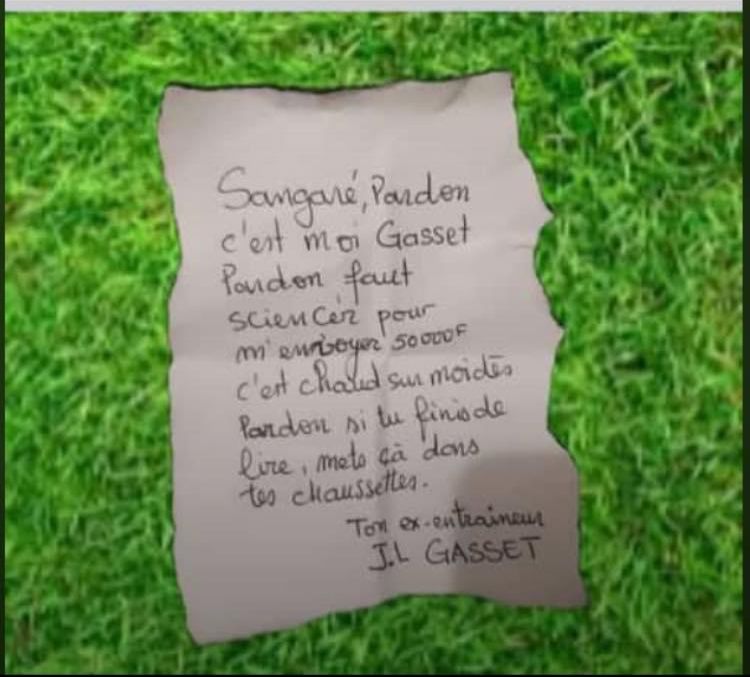 Sangaré, Pardon
c'est moi Gasset
Pardon faut
sciencér pour
m'envoyer 50000F
c'est chaud sur moi dès
Pardon si tu finis de
lire, mets çà dans
tes chaussettes.
Ton ex-entraineur
J.L GASSET